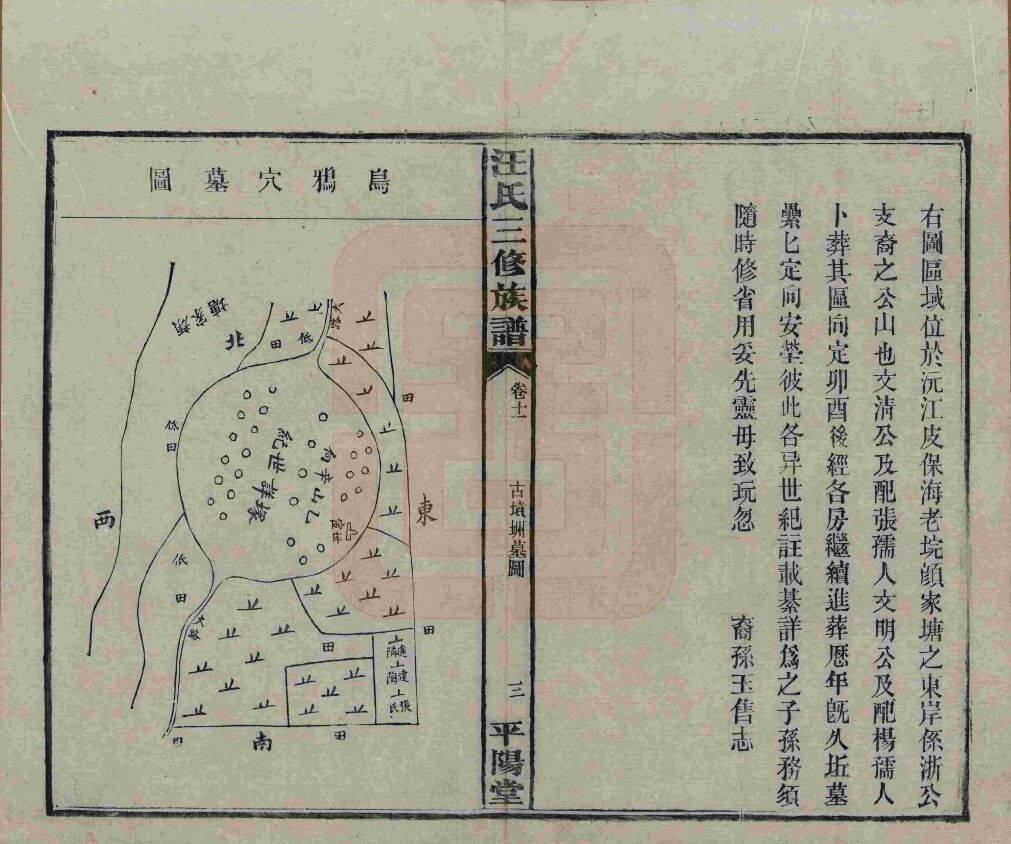 右圖區域位於沅江皮保海老垸顔家塘之東岸係浙公
支裔之公山也文清公及配張孺人文明公及配楊孺人
卜葬其區向定卯酉後經各房繼續進葬歷年旣久坵墓
纍匕定向安塋彼此各异世紀註載綦詳爲之子孫務須
隨時修省用妥先靈毋致玩忽
裔孫玉售志
汪氏三修族譜
卷十一
古墳堋墓圖
三
平陽堂
烏鴉穴墓圖
顏家塘
北
田
低
大路
田
東
低田
西
低
田
大路
南
田
田
田
田